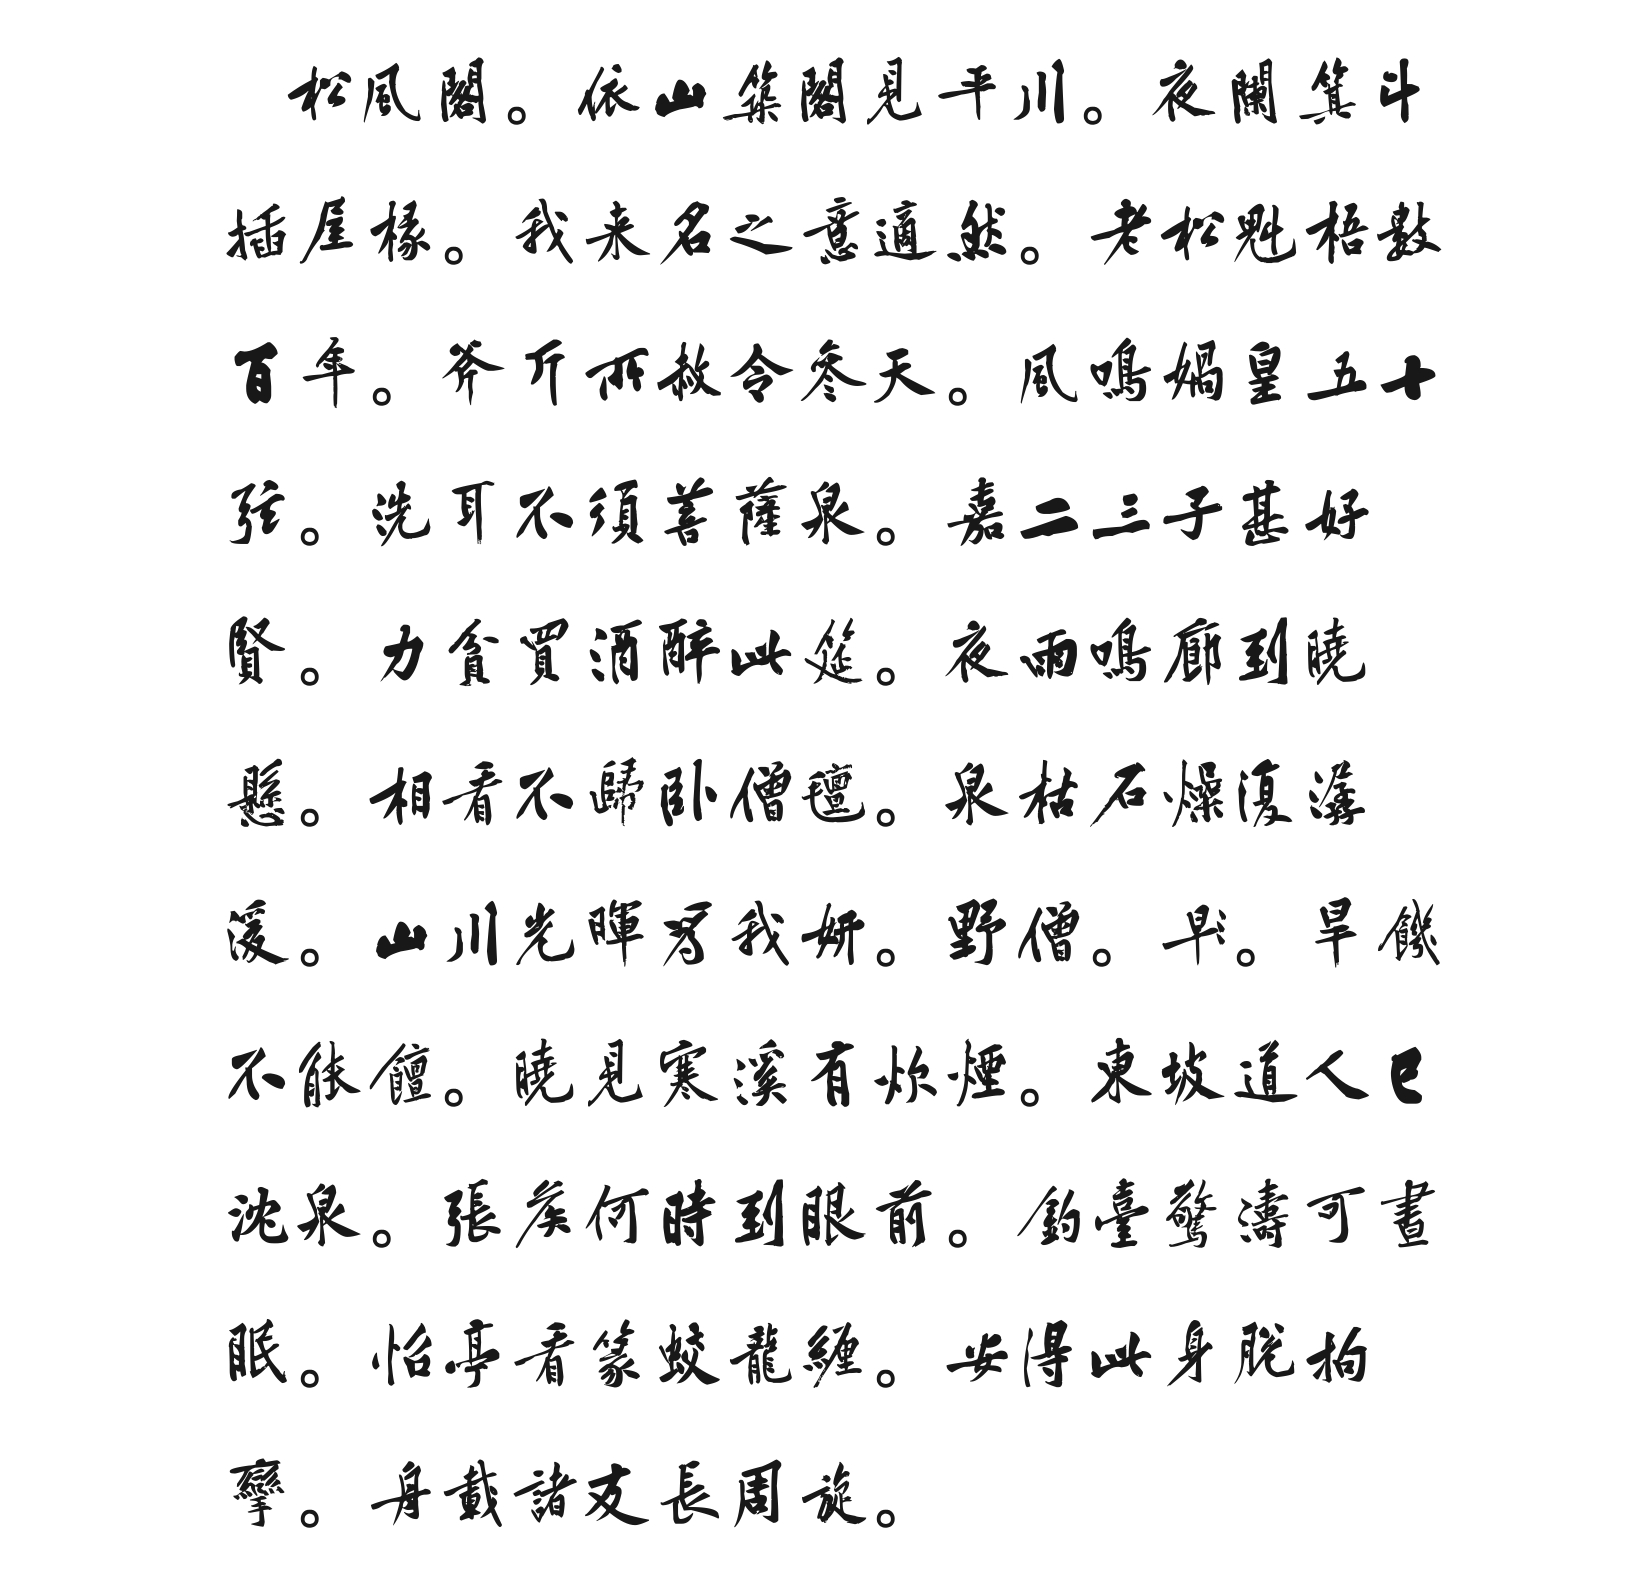 松風閣。依山築閣見平川。夜闌箕斗
插屋椽。我来名之意適然。老松魁梧數
百年。斧斤所赦令參天。風鳴媧皇五十
弦。洗耳不須菩薩泉。嘉二三子甚好
賢。力貧買酒醉此筵。夜雨鳴廊到曉
懸。相看不歸卧僧氈。泉枯石燥復潺
湲。山川光暉為我妍。野僧。早。旱饑
不能饘。曉見寒溪有炊煙。東坡道人已
沈泉。張侯何時到眼前。釣臺驚濤可晝
眠。怡亭看篆蛟龍纏。安得此身脫拘
攣。舟載諸友長周旋。